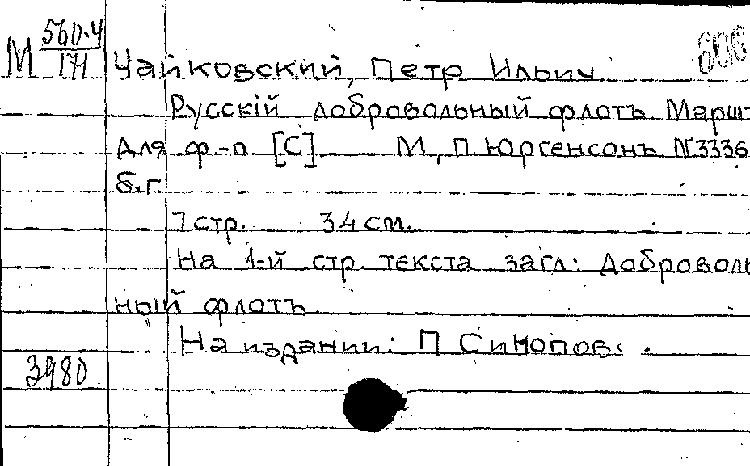 М 560.4
171
Чайковский, Петр Ильич
Русскій добровольный флотъ Марш
для ф-п [С] М, П. Юргенсонъ N 3336
б.г.
7 стр. 34 см.
На 1-й стр. текста загл: Доброволь
ный флотъ
На издании: П Синопов.
3980